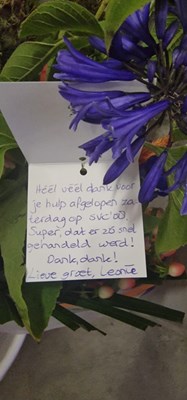 Héél véél dank voor
je hulp afgelopen za
terdag op svc'00.
Super, dat er zo snel
gehandeld werd!
Dank, dank!
Lieve groet, Leonie